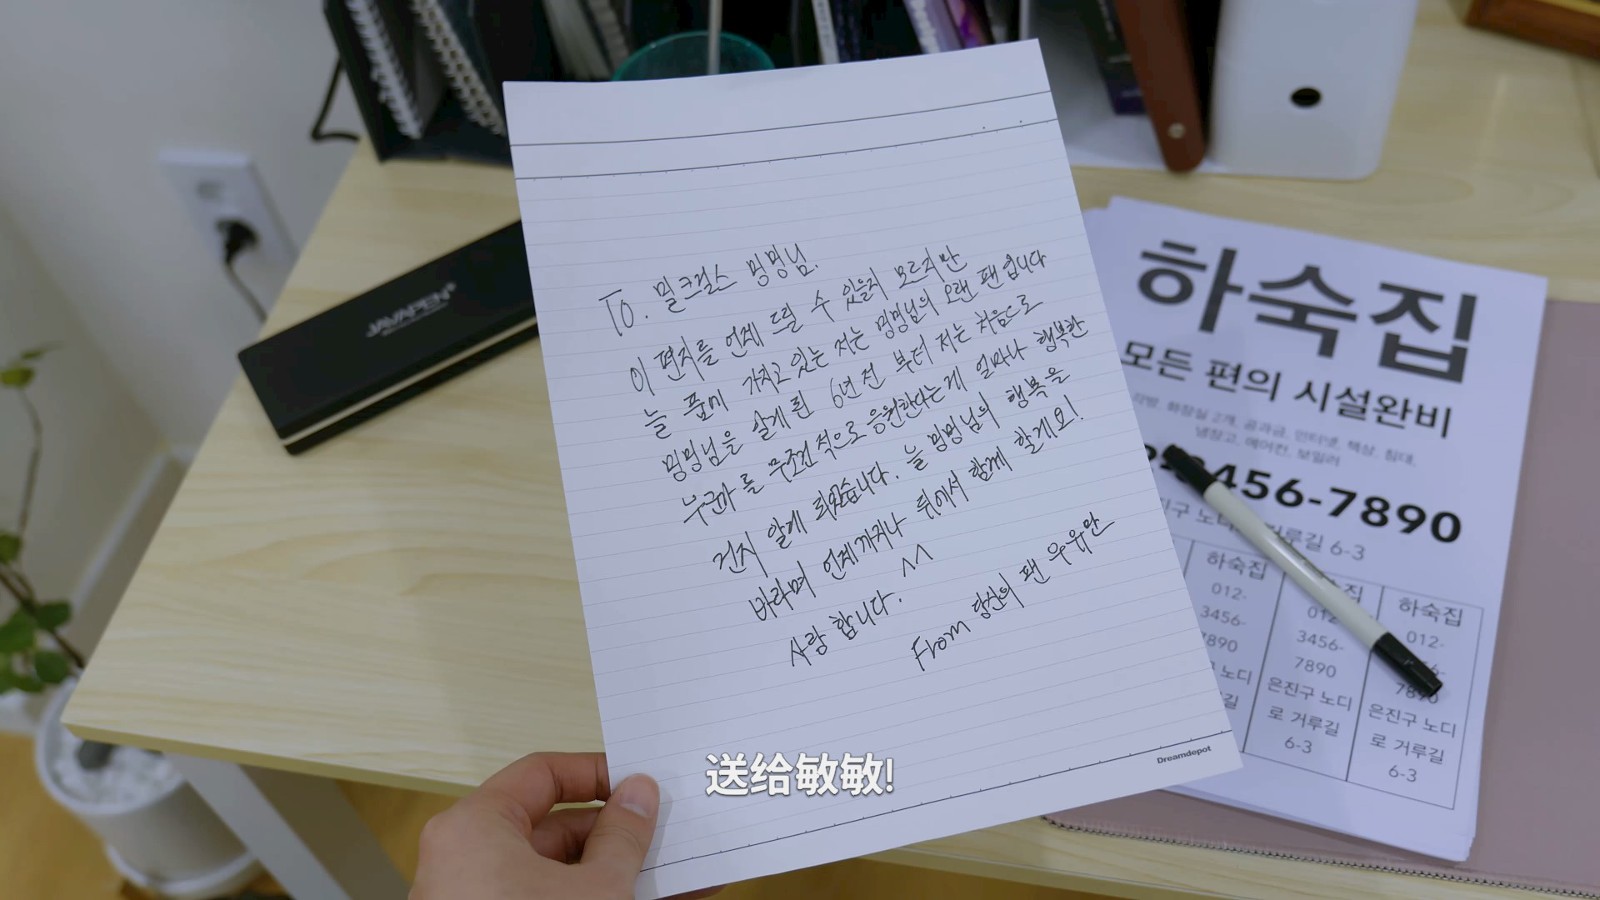 To. 밀크걸스 밍밍님.
이 편지를 언제 드릴 수 있을지 모르지만
늘 품에 가지고 있는 저는 밍밍님의 오랜 팬 입니다
밍밍님을 알게 된 6년 전 부터 저는 처음으로
누군가를 무조건적으로 응원한다는게 얼마나 행복한
건지 알게 되었습니다. 늘 밍밍님의 행복을
바라며 언제까지나 뒤에서 함께 할게요!
사랑합니다. ^^
From 당신의 팬 우유만
Dreamdepot
送给敏敏!
JAVAPEN
하숙집
모든 편의 시설완비
화장실 2개, 공과금, 인터넷, 책상, 침대,
냉장고, 에어컨, 보일러
3456-7890
진구 노디 거루길 6-3
하숙집
012-
3456-
7890
은진구 노디
로 거루길
6-3
하숙집
012-
7890
은진구 노디
로 거루길
6-3